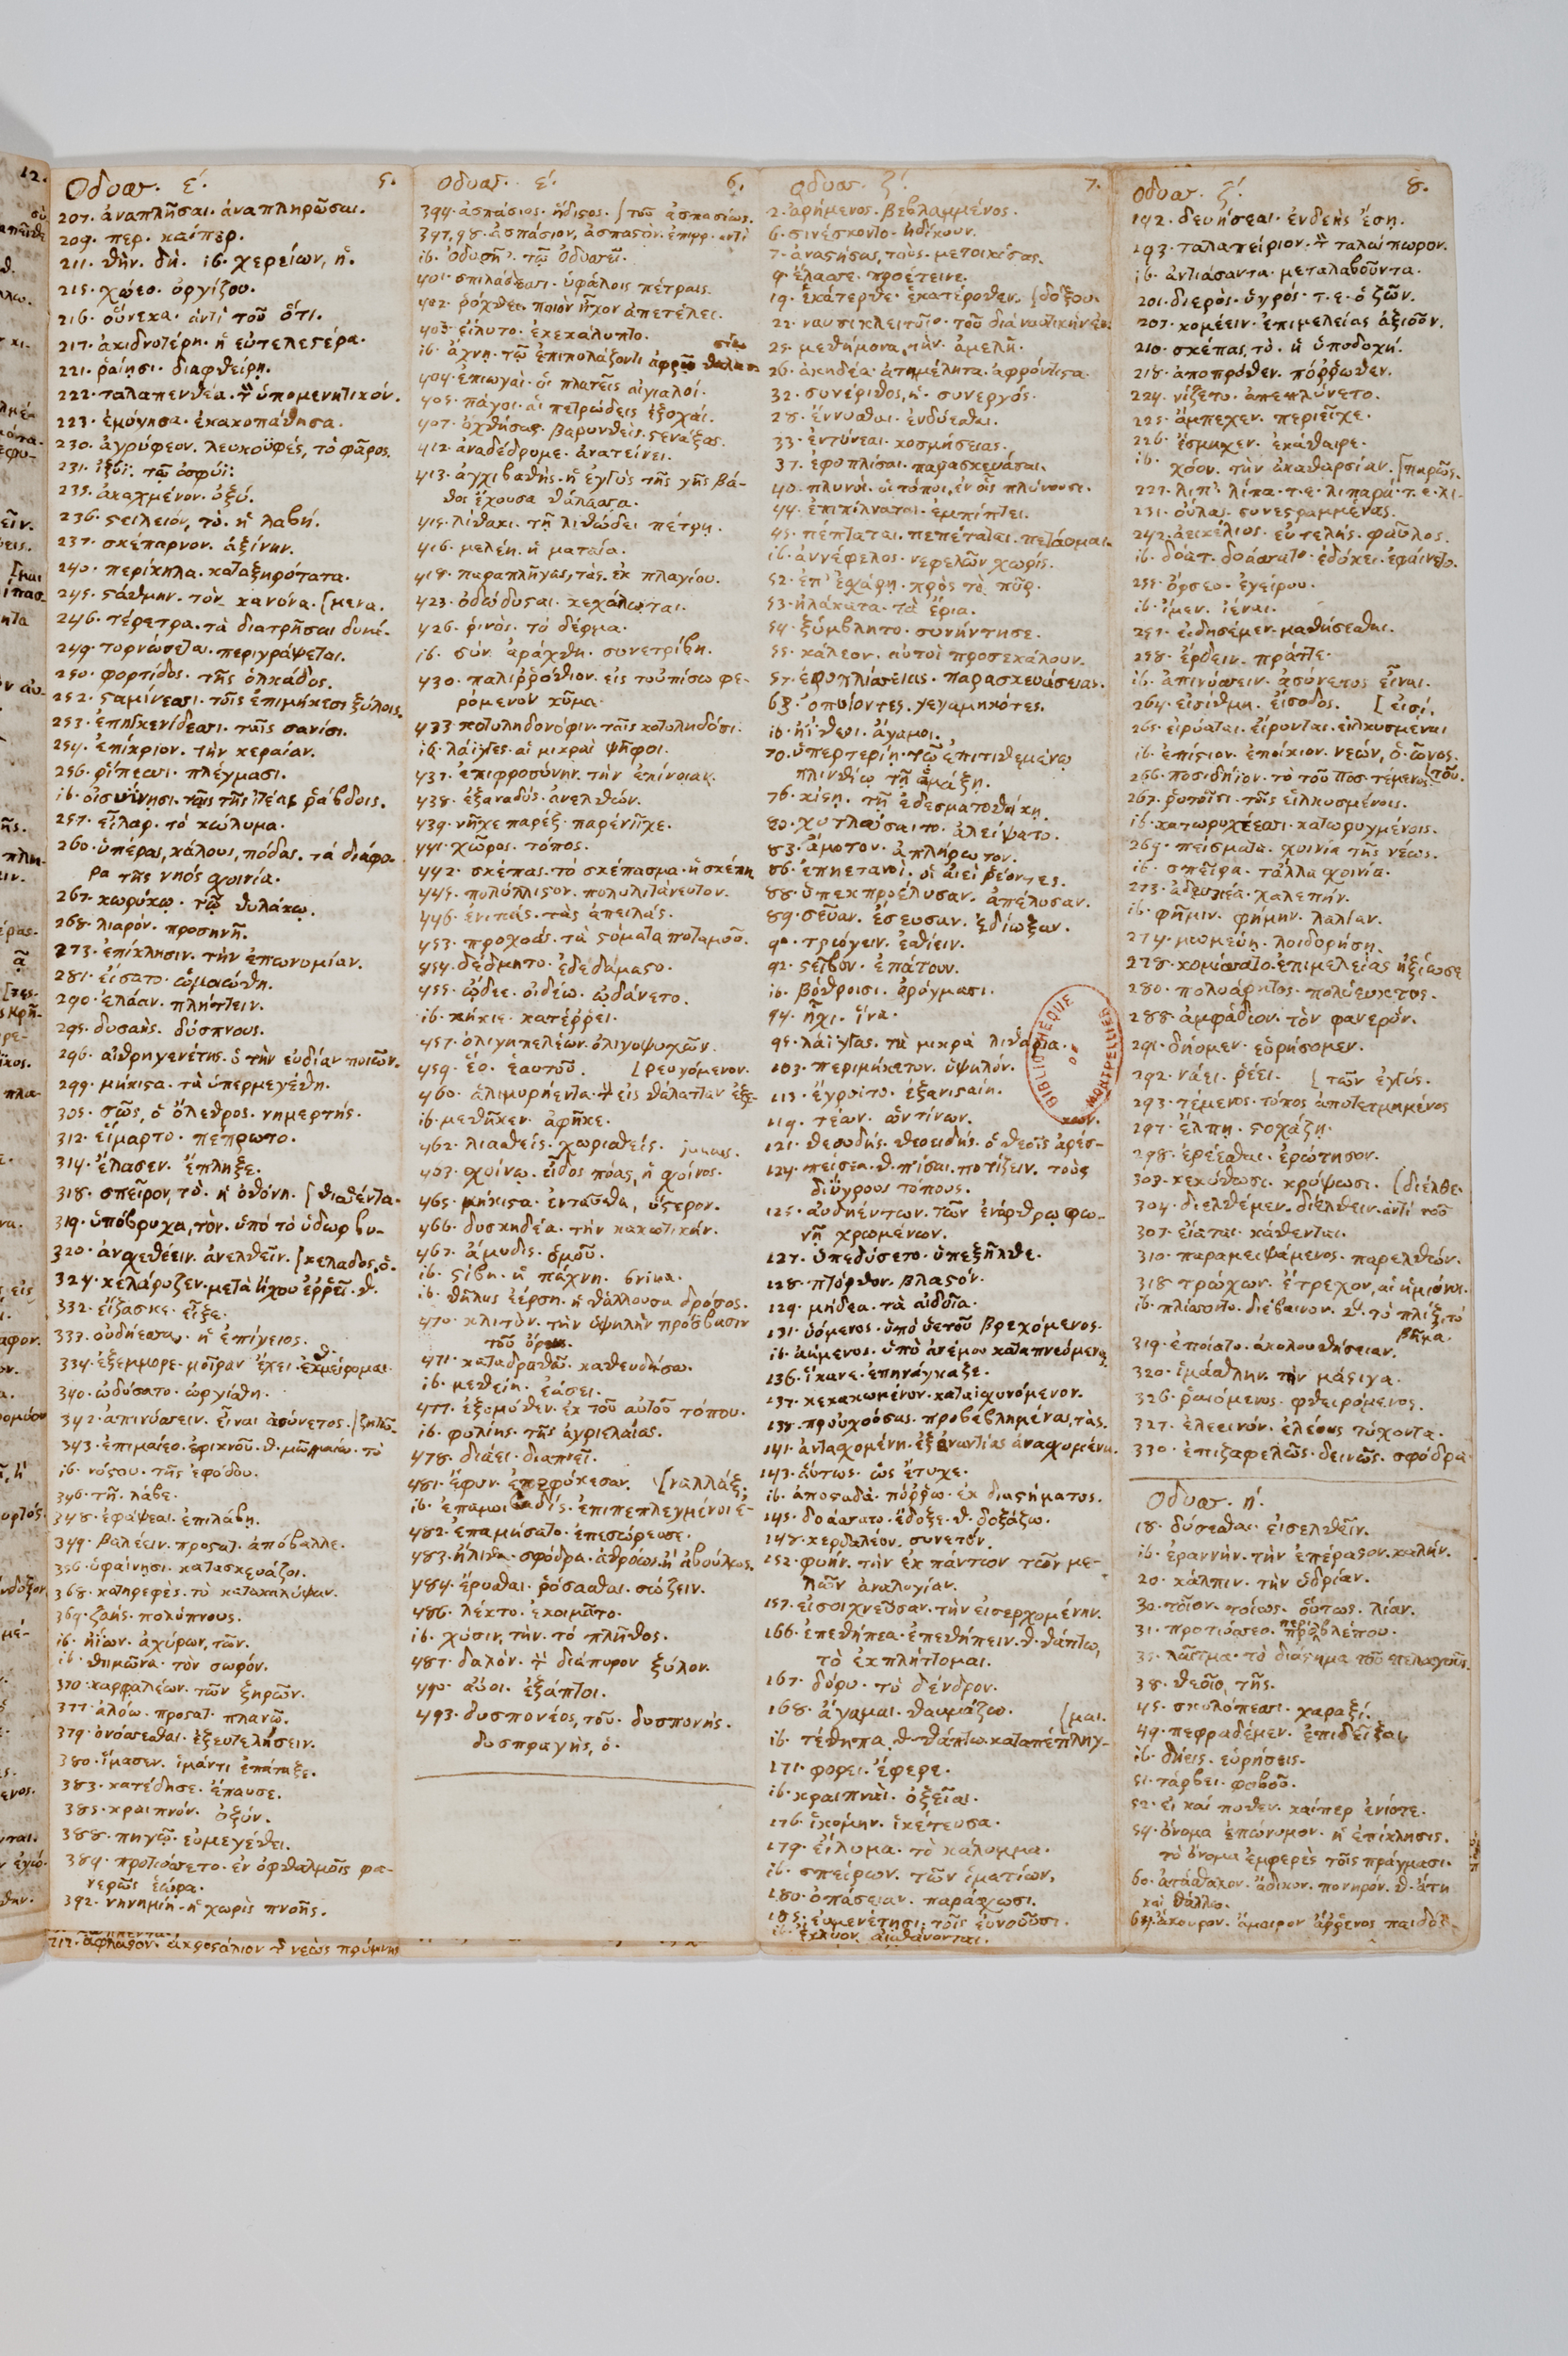 Οδυσσ. ε´. 5.
207. ἀναπλῆσαι. ἀναπληρῶσαι.
209. περ. καίπερ.
211. θὴν. δή. ib. χερείων, ἡ.
215. χώεο. ὀργίζου.
216. οὕνεκα. ἀντὶ τοῦ ὅτι.
217. ἀκιδνοτέρη. ἡ εὐτελεστέρα.
221. ῥαίῃσι. διαφθείρῃ.
222. ταλαπενθέα. τὸν ὑπομενητικόν.
223. ἐμόγησα. ἐκακοπάθησα.
230. ἀγρύφεον. λευκοϋφές, τὸ φᾶρος.
231. ἰξυῖ. τῷ ὀσφύϊ.
235. ἀκαχμένον. ὀξύ.
236. στειλειόν, τὸ. ἡ λαβή.
237. σκέπαρνον. ἀξίνην.
240. περίκηλα. καταξηρότατα.
245. στάθμην. τὸν κανόνα. [μενα.
246. τέρετρα. τὰ διατρῆσαι δυνά-
249. τορνώσεται. περιγράψεται.
250. φορτίδος. τῆς ὁλκάδος.
252. σταμίνεσσι. τοῖς ἐπιμήκεσι ξύλοις.
253. ἐπηγκενίδεσσι. ταῖς σανίσι.
254. ἐπίκριον. τὴν κεραίαν.
256. ῥίπεσσι. πλέγμασι.
ib. οἰσυΐνῃσι. ταῖς τῆς ἰτέας ῥάβδοις.
257. εἶλαρ. τὸ κώλυμα.
260. ὑπέρας, κάλους, πόδας. τὰ διάφο-
ρα τῆς νηὸς σχοινία.
267. κωρύκῳ. τῷ θυλάκῳ.
268. λιαρόν. προσηνῆ.
273. ἐπίκλησιν. τὴν ἐπωνυμίαν.
281. εἴσατο. ὡμοιώθη.
290. ἐλάαν. πλήττειν.
295. δυσαής. δύσπνους.
296. αἰθρηγενέτης. ὁ τὴν εὐδίαν ποιῶν.
299. μήκιστα. τὰ ὑπερμεγέθη.
305. σῶς, ὁ ὄλεθρος. νημερτής.
312. εἵμαρτο. πέπρωτο.
314. ἔλασεν. ἔπληξε.
318. σπεῖρον, τὸ. ἡ ὀθόνη. [θισθέντα.
319. ὑπόβρυχα, τὸν. ὑπὸ τὸ ὕδωρ βυ-
320. ἀνσχεθέειν. ἀνελθεῖν. [κελαδος, ὁ.
324. κελάρυζεν. μετὰ ἤχου ἐῤῥεῖ. θ.
332. εἴξασκε. εἶξε.
333. αὐδήεσσα. ἡ ἐπίγειος.
334. ἐξέμμορε. μοῖραν ἔχει. θ. ἐκμείρομαι.
340. ὠδύσατο. ὠργίσθη.
342. ἀπινύσσειν. εἶναι ἀσύνετος. [ζητῶ.
343. ἐπιμαίεο. ἐφικνοῦ. θ. μῶ, μαίω. τὸ
ib. νόστου. τῆς ἐφόδου.
346. τῆ. λάβε.
348. ἐφάψεαι. ἐπιλάβῃ.
349. βαλέειν. προστατ. ἀπόβαλλε.
356. ὑφαίνῃσι. κατασκευάζοι.
368. κατηρεφές. τὸ κατακαλύψαν.
369. ζαής. πολύπνους.
ib. ἠΐων. ἀχύρων, τῶν.
ib. θημῶνα. τὸν σωρόν.
370. καρφαλέων. τῶν ξηρῶν.
377. ἀλόω. προστατ. πλανῶ.
379. ὀνόσσεσθαι. ἐξευτελήσειν.
380. ἵμασεν. ἱμάντι ἐπάταξε.
383. κατέδησε. ἔπαυσε.
385. κραιπνόν. ὀξύν.
388. πηγῷ. εὐμεγέθει.
389. προτιόσσετο. ἐν ὀφθαλμοῖς φα-
νερῶς ἑώρα.
392. νηνεμίη. ἡ χωρὶς πνοῆς.
217. ἄφλαστον. ἀκροστόλιον τὸ νεὼς πρύμνης
Οδυσσ. ε´. 6.
394. ἀσπάσιος. ἥδιστος. [τοῦ ἀσπασίως.
397, 98. ἀσπάσιον, ἀσπαστόν. ἐπιρρ. ἀντὶ
ib. Ὀδυσῆ᾽. τῷ Ὀδυσσεῖ.
401. σπιλάδεσσι. ὑφάλοις πέτραις.
402. ῥόχθει. ποιὸν ἦχον ἀπετέλει.
403. εἴλυτο. ἐκεκάλυπτο.
ib. ἄχνῃ. τῷ ἐπιπολάζοντι ἀφρῷ θαλασσίῳ
404. ἐπιωγαὶ. οἱ πλατεῖς αἰγιαλοί.
405. πάγοι. αἱ πετρώδεις ἐξοχαί.
407. ὀχθήσας. βαρυνθεὶς. στενάξας.
412. ἀναδέδρομε. ἀνατείνει.
413. ἀγχιβαθής. ἡ ἐγγὺς τῆς γῆς βά-
θος ἔχουσα θάλασσα.
415. λίθακι. τῇ λιθώδει πέτρῃ.
416. μελέη. ἡ ματαία.
418. παραπλῆγας, τὰς. ἐκ πλαγίου.
423. ὀδώδυσται. κεχόλωται.
426. ῥινὸς. τὸ δέρμα.
ib. σύν. ἀράχθη. συνετρίβη.
430. παλιῤῥόθιον. εἰς τοὐπίσω φε-
ρόμενον κῦμα.
433. κοτυληδονόφιν. ταῖς κοτυληδόσι.
ib. λάϊγγες. αἱ μικραὶ ψῆφοι.
437. ἐπιφροσύνην. τὴν ἐπίνοιαν.
438. ἐξαναδύς. ἀνελθών.
439. νῆχε παρέξ. παρένηχε.
441. χῶρος. τόπος.
442. σκέπας. τὸ σκέπασμα. ἡ σκέπη
445. πολύλλιστον. πολυλιτάνευτον.
446. ἐνιπάς. τὰς ἀπειλάς.
453. προχοάς. τὰ στόματα ποταμοῦ.
454. δέδμητο. ἐδεδάμαστο.
455. ᾤδεε. οἰδέω. ὠδάνετο.
ib. κήκιε. κατέῤῥει.
457. ὀλιγηπελέων. ὀλιγοψυχῶν.
459. ἕο. ἑαυτοῦ. [ρευγόμενον.
460. ἁλιμυρήεντα. τὸν εἰς θάλατταν ἐξε-
ib. μεθῆκεν. ἀφῆκε.
462. λιασθείς. χωρισθείς.
463. σχοίνῳ. εἶδος πόας, ἡ σχοίνος.
465. μήκιστα. ἐνταῦθα, ὕστερον.
466. δυσκηδέα. τὴν κακωτικήν.
467. ἄμυδις. ὁμοῦ.
ib. στίβη. ἡ πάχνη. brina.
ib. θῆλυς ἐέρση. ἡ θάλλουσα δρόσος.
470. κλιτύν. τὴν ὑψηλὴν πρόσβασιν
τοῦ ὄρους.
471. καταδραθῶ. καθευδήσω.
ib. μεθείη. ἐάσει.
477. ἐξ ὁμόθεν. ἐκ τοῦ αὐτοῦ τόπου.
ib. φυλίης. τῆς ἀγριελαίας.
478. διάει. διαπνεῖ.
481. ἔφυν. ἐπεφύκεσαν. [ναλλάξ.
ib. ἐπαμοιβαδίς. ἐπιπεπλεγμένοι ἐ-
482. ἐπαμήσατο. ἐπεσώρευσε.
483. ἤλιθα. σφόδρα. ἀθρόως. ἢ ἀβούλως.
484. ἔρυσθαι. ῥύσασθαι. σώζειν.
486. λέκτο. ἐκοιμᾶτο.
ib. χύσιν, τὴν. τὸ πλῆθος.
487. δαλόν. τὸ διάπυρον ξύλον.
490. αὔοι. ἐξάπτοι.
493. δυσπονέος, τοῦ. δυσπονής.
δυσπραγής, ὁ.
Οδυσσ. ζ´. 7.
2. ἀρήμενος. βεβλαμμένος.
6. σινέσκοντο. ἠδίκουν.
7. ἀναστήσας, τοὺς. μετοικίσας.
9. ἔλασσε. προέτεινε.
19. ἑκάτερθε. ἑκατέρωθεν. [δόξου.
22. ναυσικλειτοῖο. τοῦ διὰ ναυτικὴν ἐν-
25. μεθήμονα, τὴν. ἀμελῆ.
26. ἀκηδέα. ἀτημέλητα. ἀφρόντιστα.
32. συνέριθος, ἡ. συνεργός.
28. ἕννυσθαι. ἐνδύεσθαι.
33. ἐντύνεαι. κοσμήσειας.
37. ἐφοπλίσαι. παρασκευάσαι.
40. πλυνοὶ. οἱ τόποι, ἐν οἷς πλύνουσι.
44. ἐπιπίλναται. ἐμπίπτει.
45. πέπταται. πεπέταται. πετάομαι.
ib. ἀννέφελος. νεφελῶν χωρίς.
52. ἐπ᾽ ἐσχάρῃ. πρὸς τὸ πῦρ.
53. ἠλάκατα. τὰ ἔρια.
54. ξύμβλητο. συνήντησε.
55. κάλεον. αὐτοὶ προσεκάλουν.
57. ἐφοπλίσσειας. παρασκευάσειας.
63. ὀπυίοντες. γεγαμηκότες.
ib. ἠΐθεοι. ἄγαμοι.
70. ὑπερτερίῃ. τῷ ἐπιτιθεμένῳ
πλινθίῳ τῇ ἁμάξῃ.
76. κίστῃ. τῇ ἐδεσματοθήκῃ.
80. χυτλώσαιτο. ἀλείψατο.
83. ἄμοτον. ἀπλήρωτον.
86. ἐπηετανοί. οἱ ἀεὶ ῥέοντες.
88. ὑπεκπροέλυσαν. ἀπέλυσαν.
89. σεῦαν. ἔσευσαν. ἐδίωξαν.
90. τρώγειν. ἐσθίειν.
92. στεῖβον. ἐπάτουν.
ib. βόθροισι. ὀρύγμασι.
94. ἧχι. ἵνα.
95. λάϊγγας. τὰ μικρὰ λιθάρια.
103. περιμήκετον. ὑψηλόν.
113. ἔγροιτο. ἐξανισταίη.
119. τέων. ὧν τίνων. κων.
121. θεουδής. θεοειδής. ὁ θεοῖς ἀρέσ-
124. πείσεα. θ. πίσαι. ποτίζειν. τοὺς
διύγρους τόπους.
125. αὐδηέντων. τῶν ἐνάρθρῳ φω-
νῇ χρωμένων.
127. ὑπεδύσετο. ὑπεξῆλθε.
128. πτόρθον. βλαστόν.
129. μήδεα. τὰ αἰδοῖα.
131. ὑόμενος. ὑπὸ ὑετοῦ βρεχόμενος.
ib. ἀήμενος. ὑπὸ ἀνέμου καταπνεόμενος
136. ἵκανε. ἐπηνάγκαξε.
137. κεκακωμένον. καταισχυνόμενον.
138. προὐχούσας. προβεβλημένας, τὰς.
141. ἀντασχομένη. ἐξ ἐναντίας ἀνασχομένη.
143. αὔτως. ὡς ἔτυχε.
ib. ἀποσταδά. πόῤῥω. ἐκ διαστήματος.
145. δοάσσατο. ἔδοξε. θ. δοξάζω.
148. κερδαλέον. συνετόν.
152. φυήν. τὴν ἐκ πάντων τῶν με-
λῶν ἀναλογίαν.
157. εἰσοιχνεῦσαν. τὴν εἰσερχομένην.
166. ἐπεθήπεα. ἐπεθήπειν. θ. θάπτω,
τὸ ἐκπλήττομαι.
167. δόρυ. τὸ δένδρον.
168. ἄγαμαι. θαυμάζω. [μαι.
ib. τέθηπα. θ. θάπτω. καταπέπληγ-
171. φορει. ἔφερε.
ib. κραιπναὶ. ὀξεῖαι.
176. ἱκόμην. ἱκέτευσα.
179. εἴλυμα. τὸ κάλυμμα.
ib. σπείρων. τῶν ἱματίων.
180. ὀπάσειαν. παράσχωσι.
185. εὐμενέτῃσι. τοῖς εὐνοοῦσι.
ib. ἔκλυον. αἰσθάνονται.
BIBLIOTHÈQUE DE MONTPELLIER
Οδυσσ. ζ´. 8.
192. δευήσεαι. ἐνδεὴς ἔσῃ.
193. ταλαπείριον. τὸν ταλαίπωρον.
ib. ἀντιάσαντα. μεταλαβοῦντα.
201. διερὸς. ὑγρός. τ. ε. ὁ ζῶν.
207. κομέειν. ἐπιμελείας ἀξιοῦν.
210. σκέπας, τὸ. ἡ ὑποδοχή.
218. ἀποπρόθεν. πόῤῥωθεν.
224. νίζετο. ἀπεπλύνετο.
225. ἄμπεχεν. περιεῖχε.
226. ἔσμηχεν. ἐκάθαιρε.
ib. χόον. τὴν ἀκαθαρσίαν. [παρῶς.
227. λίπ᾽. λίπα. τ. ε. λιπαρὰ. τ. ε. λι-
231. οὔλας. συνεστραμμένας.
242. ἀεικέλιος. εὐτελής. φαῦλος.
ib. δόατ. δοάσσατο. ἐδόκει. ἐφαίνετο.
255. ὄρσεο. ἐγείρου.
ib. ἴμεν. ἰέναι.
257. εἰδησέμεν. μαθήσεσθαι.
258. ἔρδειν. πράττε.
ib. ἀπινύσσειν. ἀσύνετος εἶναι.
264. εἰσίθμη. εἴσοδος. [εἰσί.
265. εἰρύαται. εἴρονται. εἱλκυσμέναι
ib. ἐπίστιον. ἐποίκιον. νεών, ὁ. ὦνος.
266. ποσιδήϊον. τὸ τοῦ Ποσ. τέμενος. [τοῦ.
267. ῥυτοῖσι. τοῖς εἱλκυσμένοις.
ib. κατωρυχέεσσι. κατωρυγμένοις.
269. πείσματα. σχοινία τῆς νέως.
ib. σπεῖρα. τἄλλα σχοινία.
273. ἀδευκέα. χαλεπήν.
ib. φῆμιν. φήμην. λαλίαν.
274. μωμεύῃ. λοιδορήσῃ.
278. κομίσσατο. ἐπιμελείας ἠξίωσε
280. πολυάρητος. πολύευκτος.
288. ἀμφάδιον. τὸν φανερόν.
291. δήομεν. εὑρήσομεν.
292. νάει. ῥέει. [τῶν ἐγγύς.
293. τέμενος. τόπος ἀποτετμημένος
297. ἔλπῃ. στοχάζῃ.
298. ἐρέεσθαι. ἐρώτησον.
303. κεκύθωσι. κρύψωσι. [διέλθε.
304. διελθέμεν. διελθεῖν. ἀντὶ τοῦ
307. εἵαται. κάθενται.
310. παραμειψάμενος. παρελθών.
318. τρώχων. ἔτρεχον, αἱ ἡμίονοι.
ib. πλίσσοντο. διέβαινον. τὸ πλίξ, τὸ
βῆμα.
319. ἐποίατο. ἀκολουθήσειαν.
320. ἱμάσθλην. τὴν μάστιγα.
326. ῥαιόμενος. φθειρόμενος.
327. ἐλεεινόν. ἐλέους τύχοντα.
330. ἐπιζαφελῶς. δεινῶς. σφόδρα
Οδυσσ. η´.
18. δύσεσθαι. εἰσελθεῖν.
ib. ἐραννήν. τὴν ἐπέραστον. καλήν.
20. κάλπιν. τὴν ὑδρίαν.
30. τοῖον. τοίως. οὕτως. λίαν.
31. προτιόσσεο. περιβλέπου.
35. λαῖτμα. τὸ διάστημα τοῦ πελάγους.
38. θεοῖο, τῆς.
45. σκολόπεσσι. χαραξί.
49. πεφραδέμεν. ἐπιδεῖξαι.
ib. δήεις. εὑρήσεις.
51. τάρβει. φοβοῦ.
52. εἰ καί ποθεν. καίπερ ἐνίοτε.
54. ὄνομα ἐπώνυμον. ἡ ἐπίκλησις.
τὸ ὄνομα ἐμφερὲς τοῖς πράγμασι.
60. ἀτάσθαλον. ἄδικον. πονηρόν. θ. ἄτη
καὶ θάλλω.
64. ἄκουρον. ἄμοιρον ἄῤῥενος παιδός.